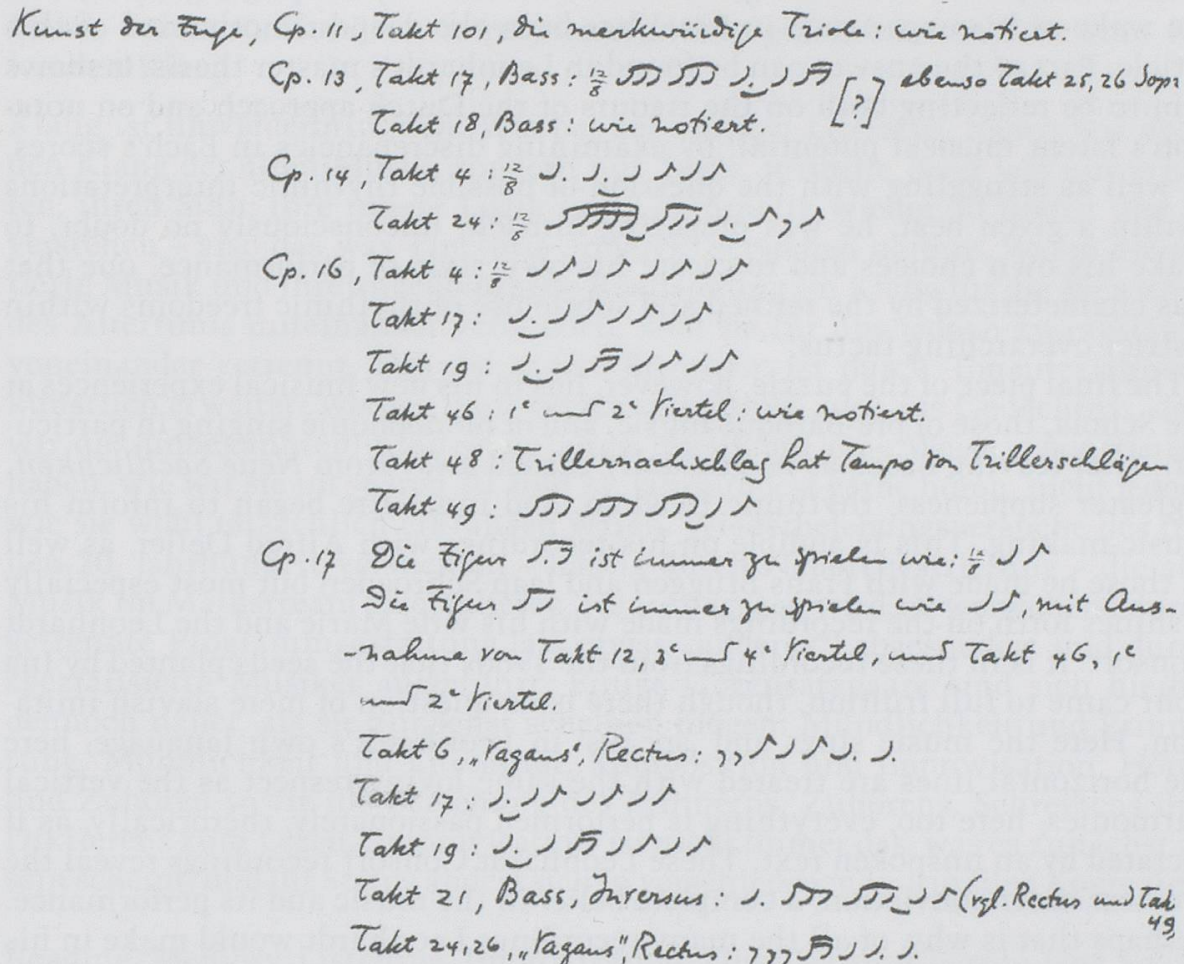 Kunst der Fuge, Cp. 11, Takt 101, die merkwürdige Triole: wie notiert.
Cp. 13, Takt 17, Bass: 12/8 [?] ebenso Takt 25, 26 Sopr
Takt 18, Bass: wie notiert.
Cp. 14, Takt 4: 12/8
Takt 24: 12/8
Cp. 16, Takt 4: 12/8
Takt 17:
Takt 19:
Takt 46: 1e und 2e Viertel: wie notiert.
Takt 48: Trillernachschlag hat Tempo von Trillerschlägen
Takt 49:
Cp. 17 Die Figur ist immer zu spielen wie: 12/8
Die Figur ist immer zu spielen wie , mit Aus-
-nahme von Takt 12, 3e und 4e Viertel, und Takt 46, 1e
und 2e Viertel.
Takt 6, „Vagans", Rectus:
Takt 17:
Takt 19:
Takt 21, Bass, Inversus: (vgl. Rectus und Tak
49,
Takt 24, 26, „Vagans", Rectus: